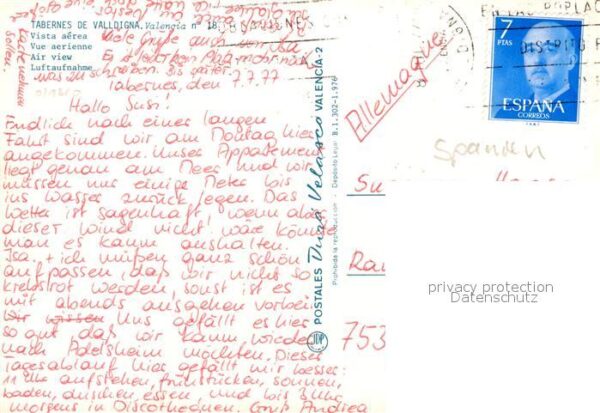 TABERNES DE VALLDIGNA, Valencia nº 18
Vista aérea
Vue aerienne
Air view
Luftaufnahme
Viele Grüße auch von
was zu schreiben. Bis später
Tabernes, den 7.7.77
Hallo Susi!
Endlich nach einer langen
Fahrt sind wir am Montag hier
angekommen. Unser Appartement
liegt genau am Meer und wir
müssen nur einige Meter bis
ins Wasser zurück legen. Das
Wetter ist sagenhaft, wenn aber
dieser Wind nicht wäre könnte
man es kaum aushalten.
Isa. + ich müßen ganz schön
aufpassen, daß wir nicht so
krebsrot werden, sonst ist es
mit abends ausgehen vorbei.
Wir wissen Uns gefällt es hier
so gut daß wir kaum wieder
nach Adelsheim möchten. Dieser
Tagesablauf hier gefällt mir besser:
11 Uhr aufstehen, frühstücken, sonnen,
baden, duschen, essen, und bis 3 Uhr
morgens in Discotheken. Gruß Andrea
POSTALES Durá Velasco VALENCIA-2
Prohibida la reproducción
Depósito Legal: B. 1.302-1.976
Allemagne
7
PTAS
ESPAÑA
CORREOS
EN LAS POBLAC
DISTRITO P
Spanien
Su
Ra
753
privacy protection
Datenschutz